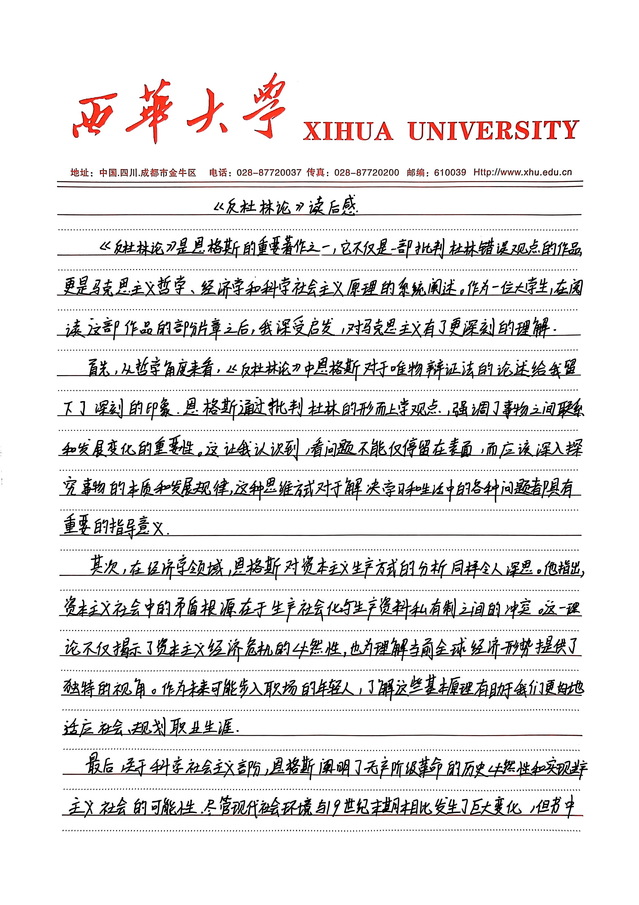 西華大學 XIHUA UNIVERSITY
地址: 中国.四川.成都市金牛区 电话: 028-87720037 传真: 028-87720200 邮编: 610039 Http://www.xhu.edu.cn
《反杜林论》读后感.
《反杜林论》是恩格斯的重要著作之一,它不仅是一部批判杜林错误观点的作品,
更是马克思主义哲学、经济学和科学社会主义原理的系统阐述。作为一位大学生,在阅
读这部作品的部分篇章之后,我深受启发,对马克思主义有了更深刻的理解.
首先,从哲学角度来看,《反杜林论》中恩格斯对于唯物辩证法的论述给我留
下了深刻的印象.恩格斯通过批判杜林的形而上学观点,强调了事物之间联系
和发展变化的重要性。这让我认识到,看问题不能仅停留在表面,而应该深入探
究事物的本质和发展规律,这种思维方式对于解决学习和生活中的各种问题都具有
重要的指导意义.
其次,在经济学领域,恩格斯对资本主义生产方式的分析同样令人深思。他指出,
资本主义社会中的矛盾根源在于生产社会化与生产资料私有制之间的冲突。这一理
论不仅揭示了资本主义经济危机的必然性,也为理解当前全球经济形势提供了
独特的视角。作为未来可能步入职场的年轻人,了解这些基本原理有助于我们更好地
适应社会、规划职业生涯.
最后,关于科学社会主义部份,恩格斯阐明了无产阶级革命的历史必然性和实现共产
主义社会的可能性.尽管现代社会环境与19世纪末期相比发生了巨大变化,但书中